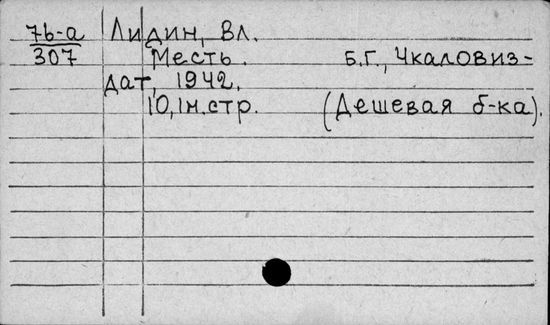 7b-a Лидин, Вл.
307 Месть. Б.Г., Чкаловиз-
дат, 1942.
10, 1н.стр. (Дешевая б-ка).